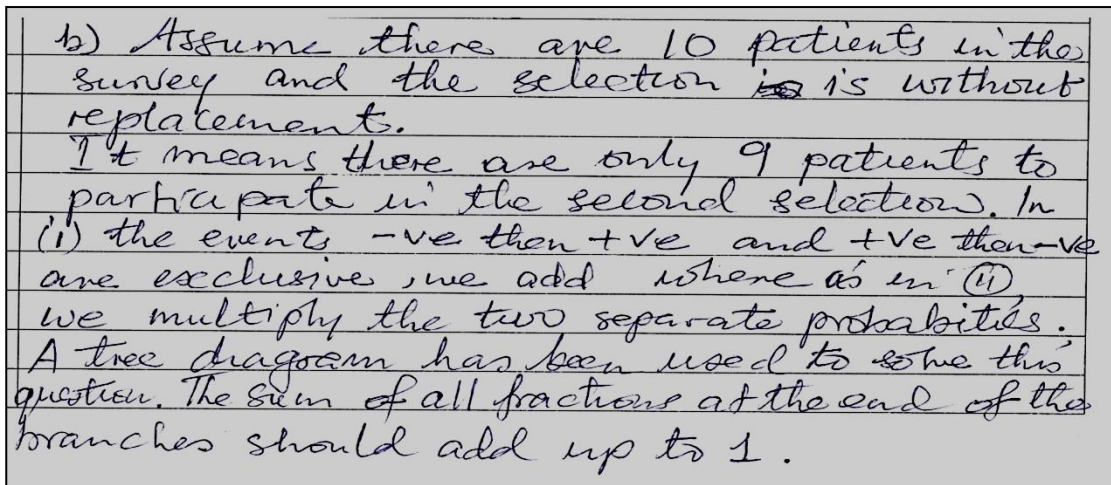 b) Assume there are 10 patients in the
survey and the selection is without
replacement.
It means there are only 9 patients to
participate in the second selection. In
(i) the events -ve then +ve and +ve then -ve
are exclusive, we add where as in (ii)
we multiply the two separate probabities.
A tree diagram has been used to solve this
question. The sum of all fractions at the end of the
branches should add up to 1.